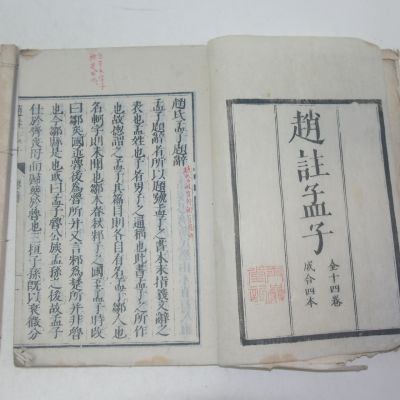 趙註孟子
全十四卷
成合四本
趙氏孟子題辭
孟子題辭者所以題號孟子之書本末指義文辭之
表也孟姓也子者男子之通稱也此書孟子之所作
也故摠謂之孟子其篇目則各自有名孟子鄒人也
名軻字則未聞也鄒本春秋邾子之國至孟子時改
曰鄒矣國近魯後為魯所并又言邾為楚所并非魯
也今鄒縣是也或曰孟子魯公族孟孫之後故孟子
仕於齊喪母而歸葬於魯也三桓子孫既以衰微分